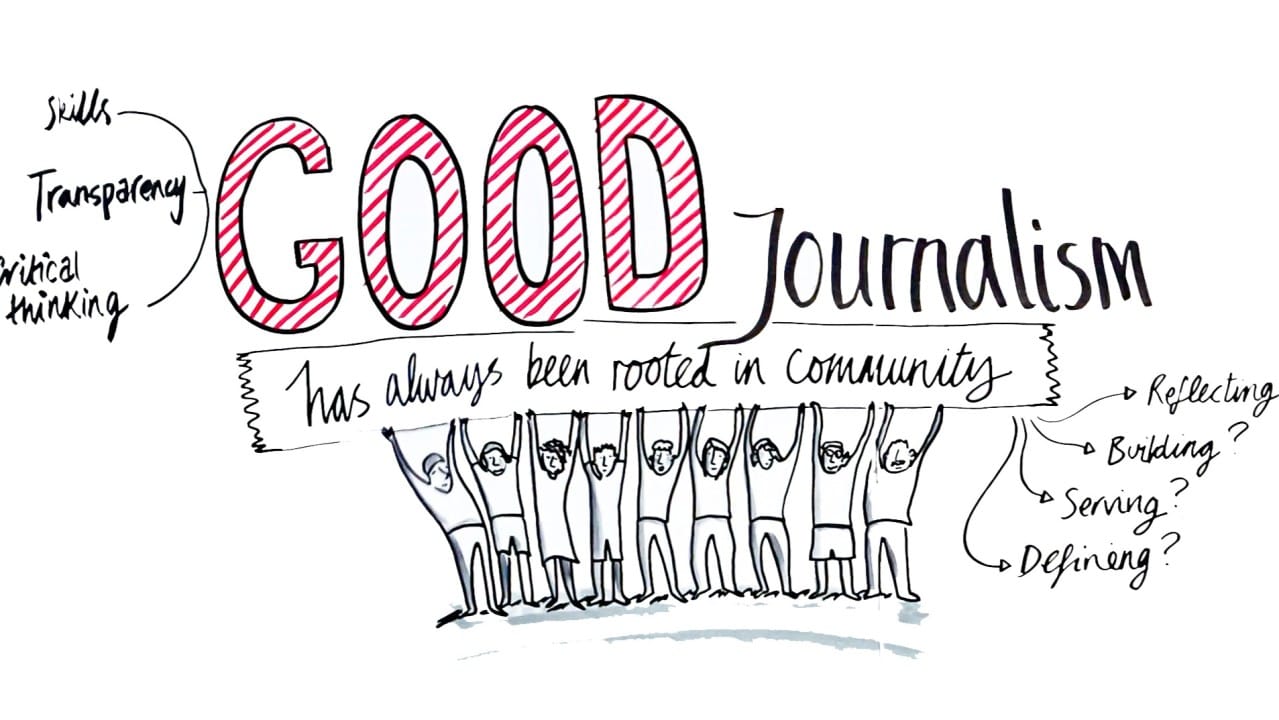 Skills
Transparency
Critical
thinking
GOOD Journalism
has always been rooted in community
Reflecting
Building?
Serving?
Defining?